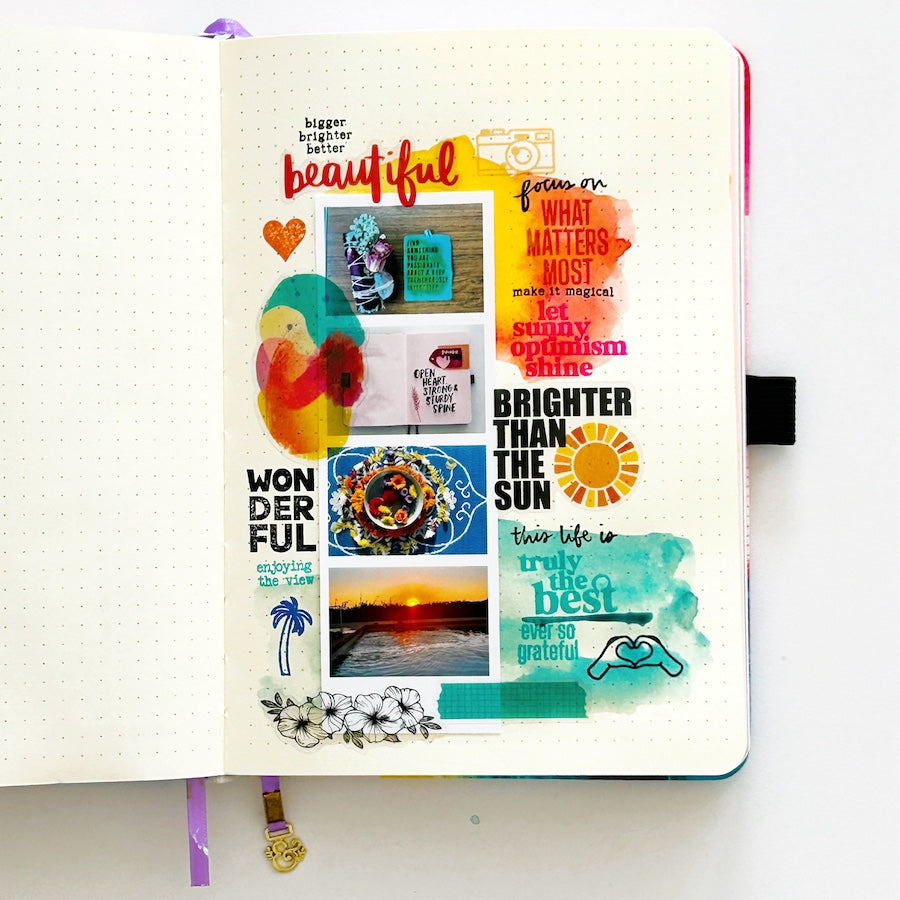 bigger
brighter
better
beautiful
focus on
WHAT
MATTERS
MOST
make it magical
let
sunny
optimism
shine
FIND
SOMETHING
YOU ARE
PASSIONATE
ABOUT & KEEP
TREMENDOUSLY
OPEN
HEART,
STRONG &
STURDY
SPINE
BRIGHTER
THAN
THE
SUN
WON
DER
FUL
enjoying
the view
this life is
truly
the
best
ever so
grateful